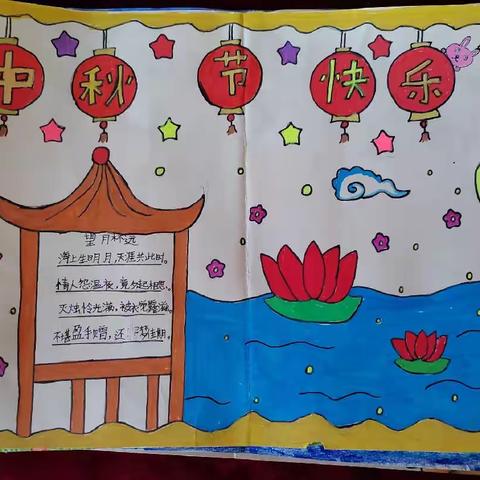 中秋节快乐
望月怀远
海上生明月,天涯共此时。
情人怨,竟夕起相思。
灭烛怜光满,衣觉露滋。
不堪盈手赠,还梦佳期。